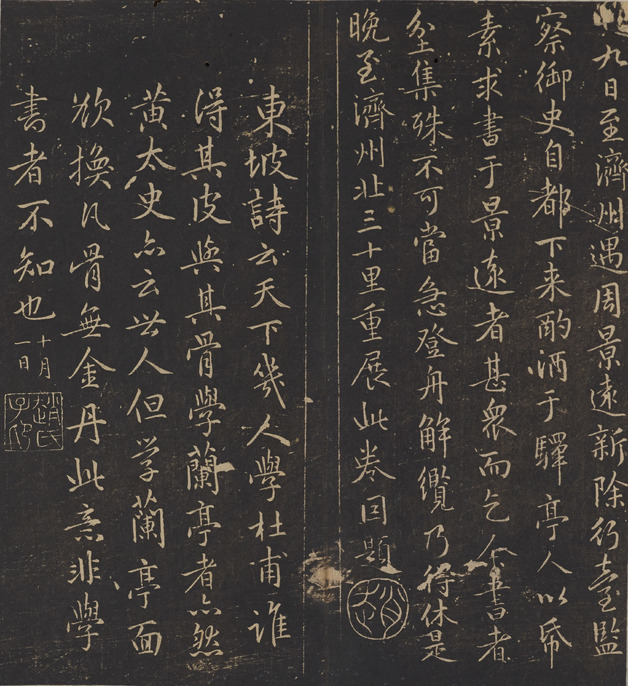 九日至濟州遇周景遠新除行臺監
察御史自都下来酌酒于驛亭人以帋
素求書于景遠者甚衆而乞余書者
坌集殊不可當急登舟解纜乃得休是
晚至濟州北三十里重展此卷因題
趙
東坡詩云天下幾人學杜甫誰
得其皮與其骨學蘭亭者亦然
黄太史亦云世人但学蘭亭面
欲換凡骨無金丹此意非學
書者不知也十月
一日
趙氏
子印